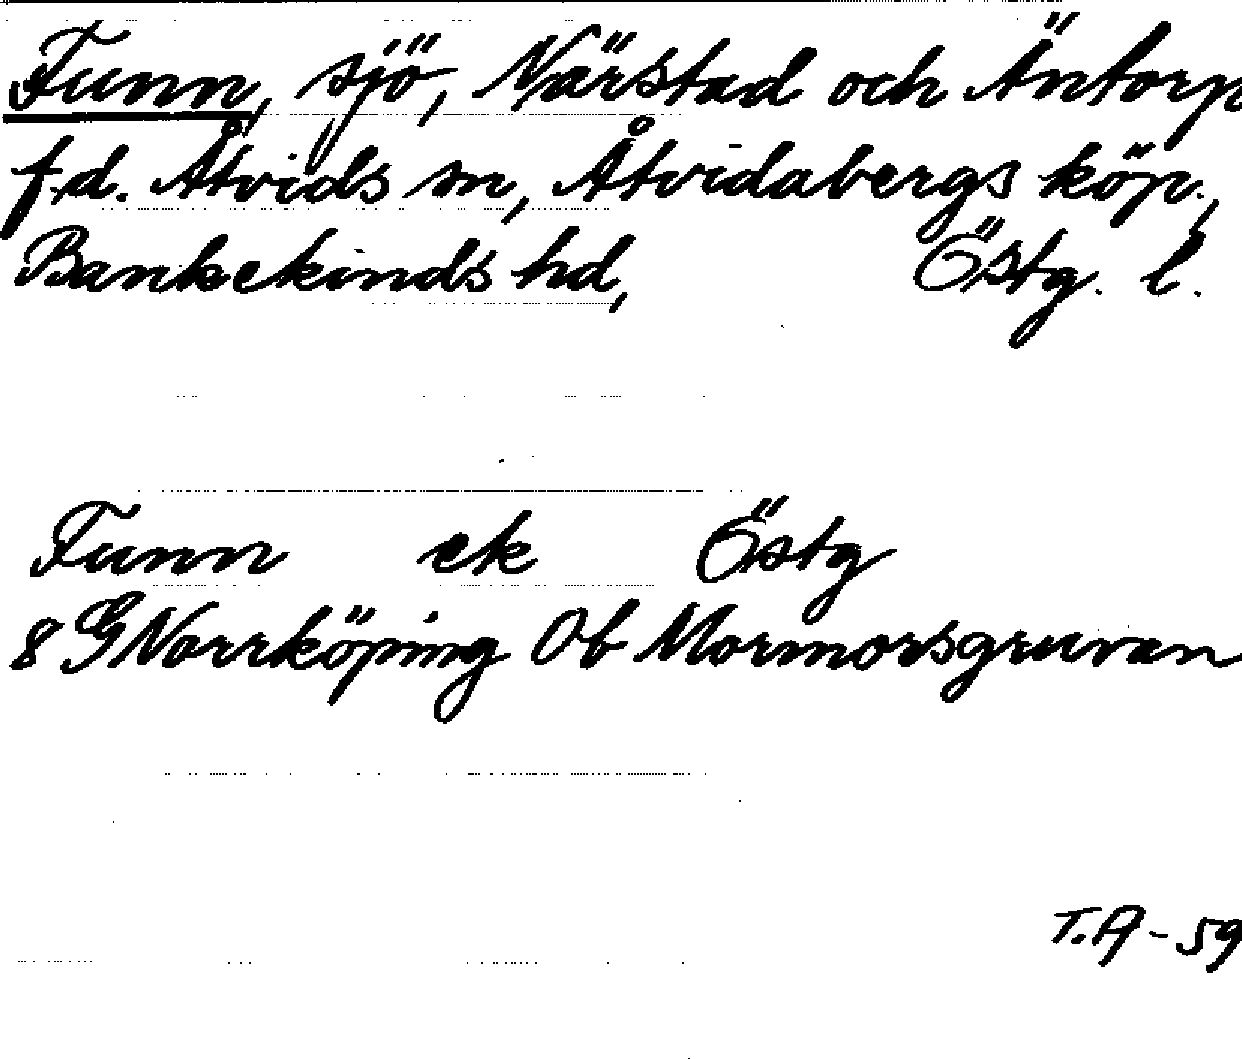 Funn, sjö, Närstad och Äntorp
f.d. Åtvids sn, Åtvidabergs köp.,
Bankekinds hd, Östg. l.
Funn ek Östg
8 G Norrköping 0b Mormorsgruvan
T.A-59